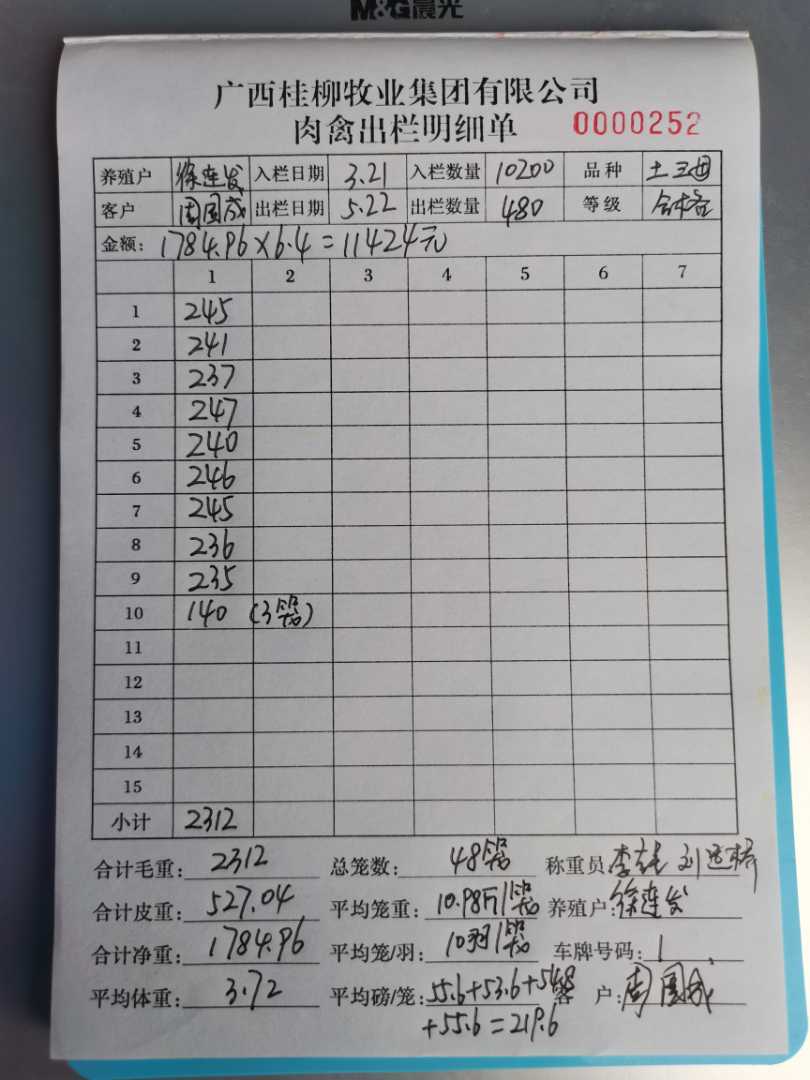 M&G晨光
广西桂柳牧业集团有限公司
肉禽出栏明细单 0000252
养殖户 徐连发 入栏日期 3.21 入栏数量 10200 品种 土二母
客户 周国成 出栏日期 5.22 出栏数量 480 等级 合格
金额: 1784.96×6.4=11424元
1 2 3 4 5 6 7
1 245
2 241
3 237
4 247
5 240
6 246
7 245
8 236
9 235
10 140 (3笼)
11
12
13
14
15
小计 2312
合计毛重: 2312 总笼数: 48笼 称重员 李 刘
合计皮重: 527.04 平均笼重: 10.98斤/笼 养殖户: 徐连发
合计净重: 1784.96 平均笼/羽: 10羽/笼 车牌号码: 1
平均体重: 3.72 平均磅/笼: 55.6+53.6+54.8 客 户: 周国成
+55.6=219.6